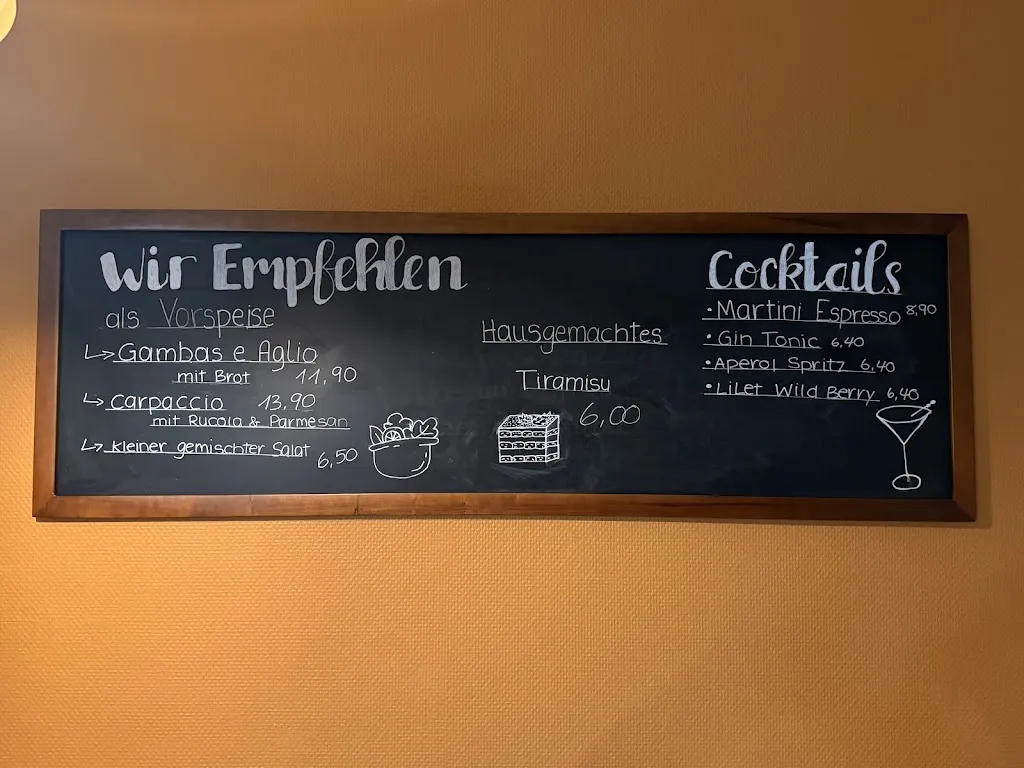 Wir Empfehlen
als Vorspeise
Gambas e Aglio
mit Brot 11,90
carpaccio 13,90
mit Rucola & Parmesan
kleiner gemischter Salat 6,50
Hausgemachtes
Tiramisu
6,00
Cocktails
• Martini Espresso 8,90
• Gin Tonic 6,40
• Aperol Spritz 6,40
• LiLet Wild Berry 6,40